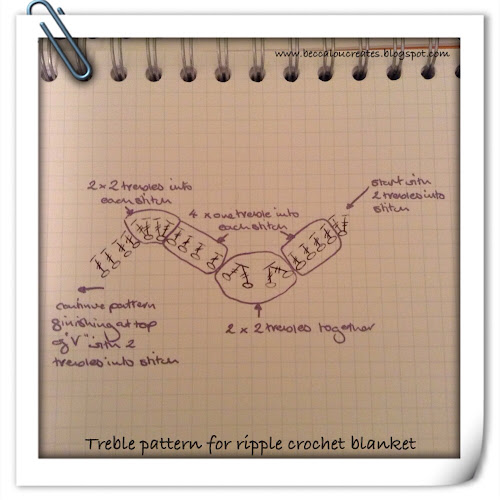 www.beccaloucreates.blogspot.com
2 x 2 trebles into
each stitch
4 x one treble into
each stitch
start with
2 trebles into
stitch
continue pattern
finishing at top
of "V" with 2
trebles into stitch
2 x 2 trebles together
Treble pattern for ripple crochet blanket